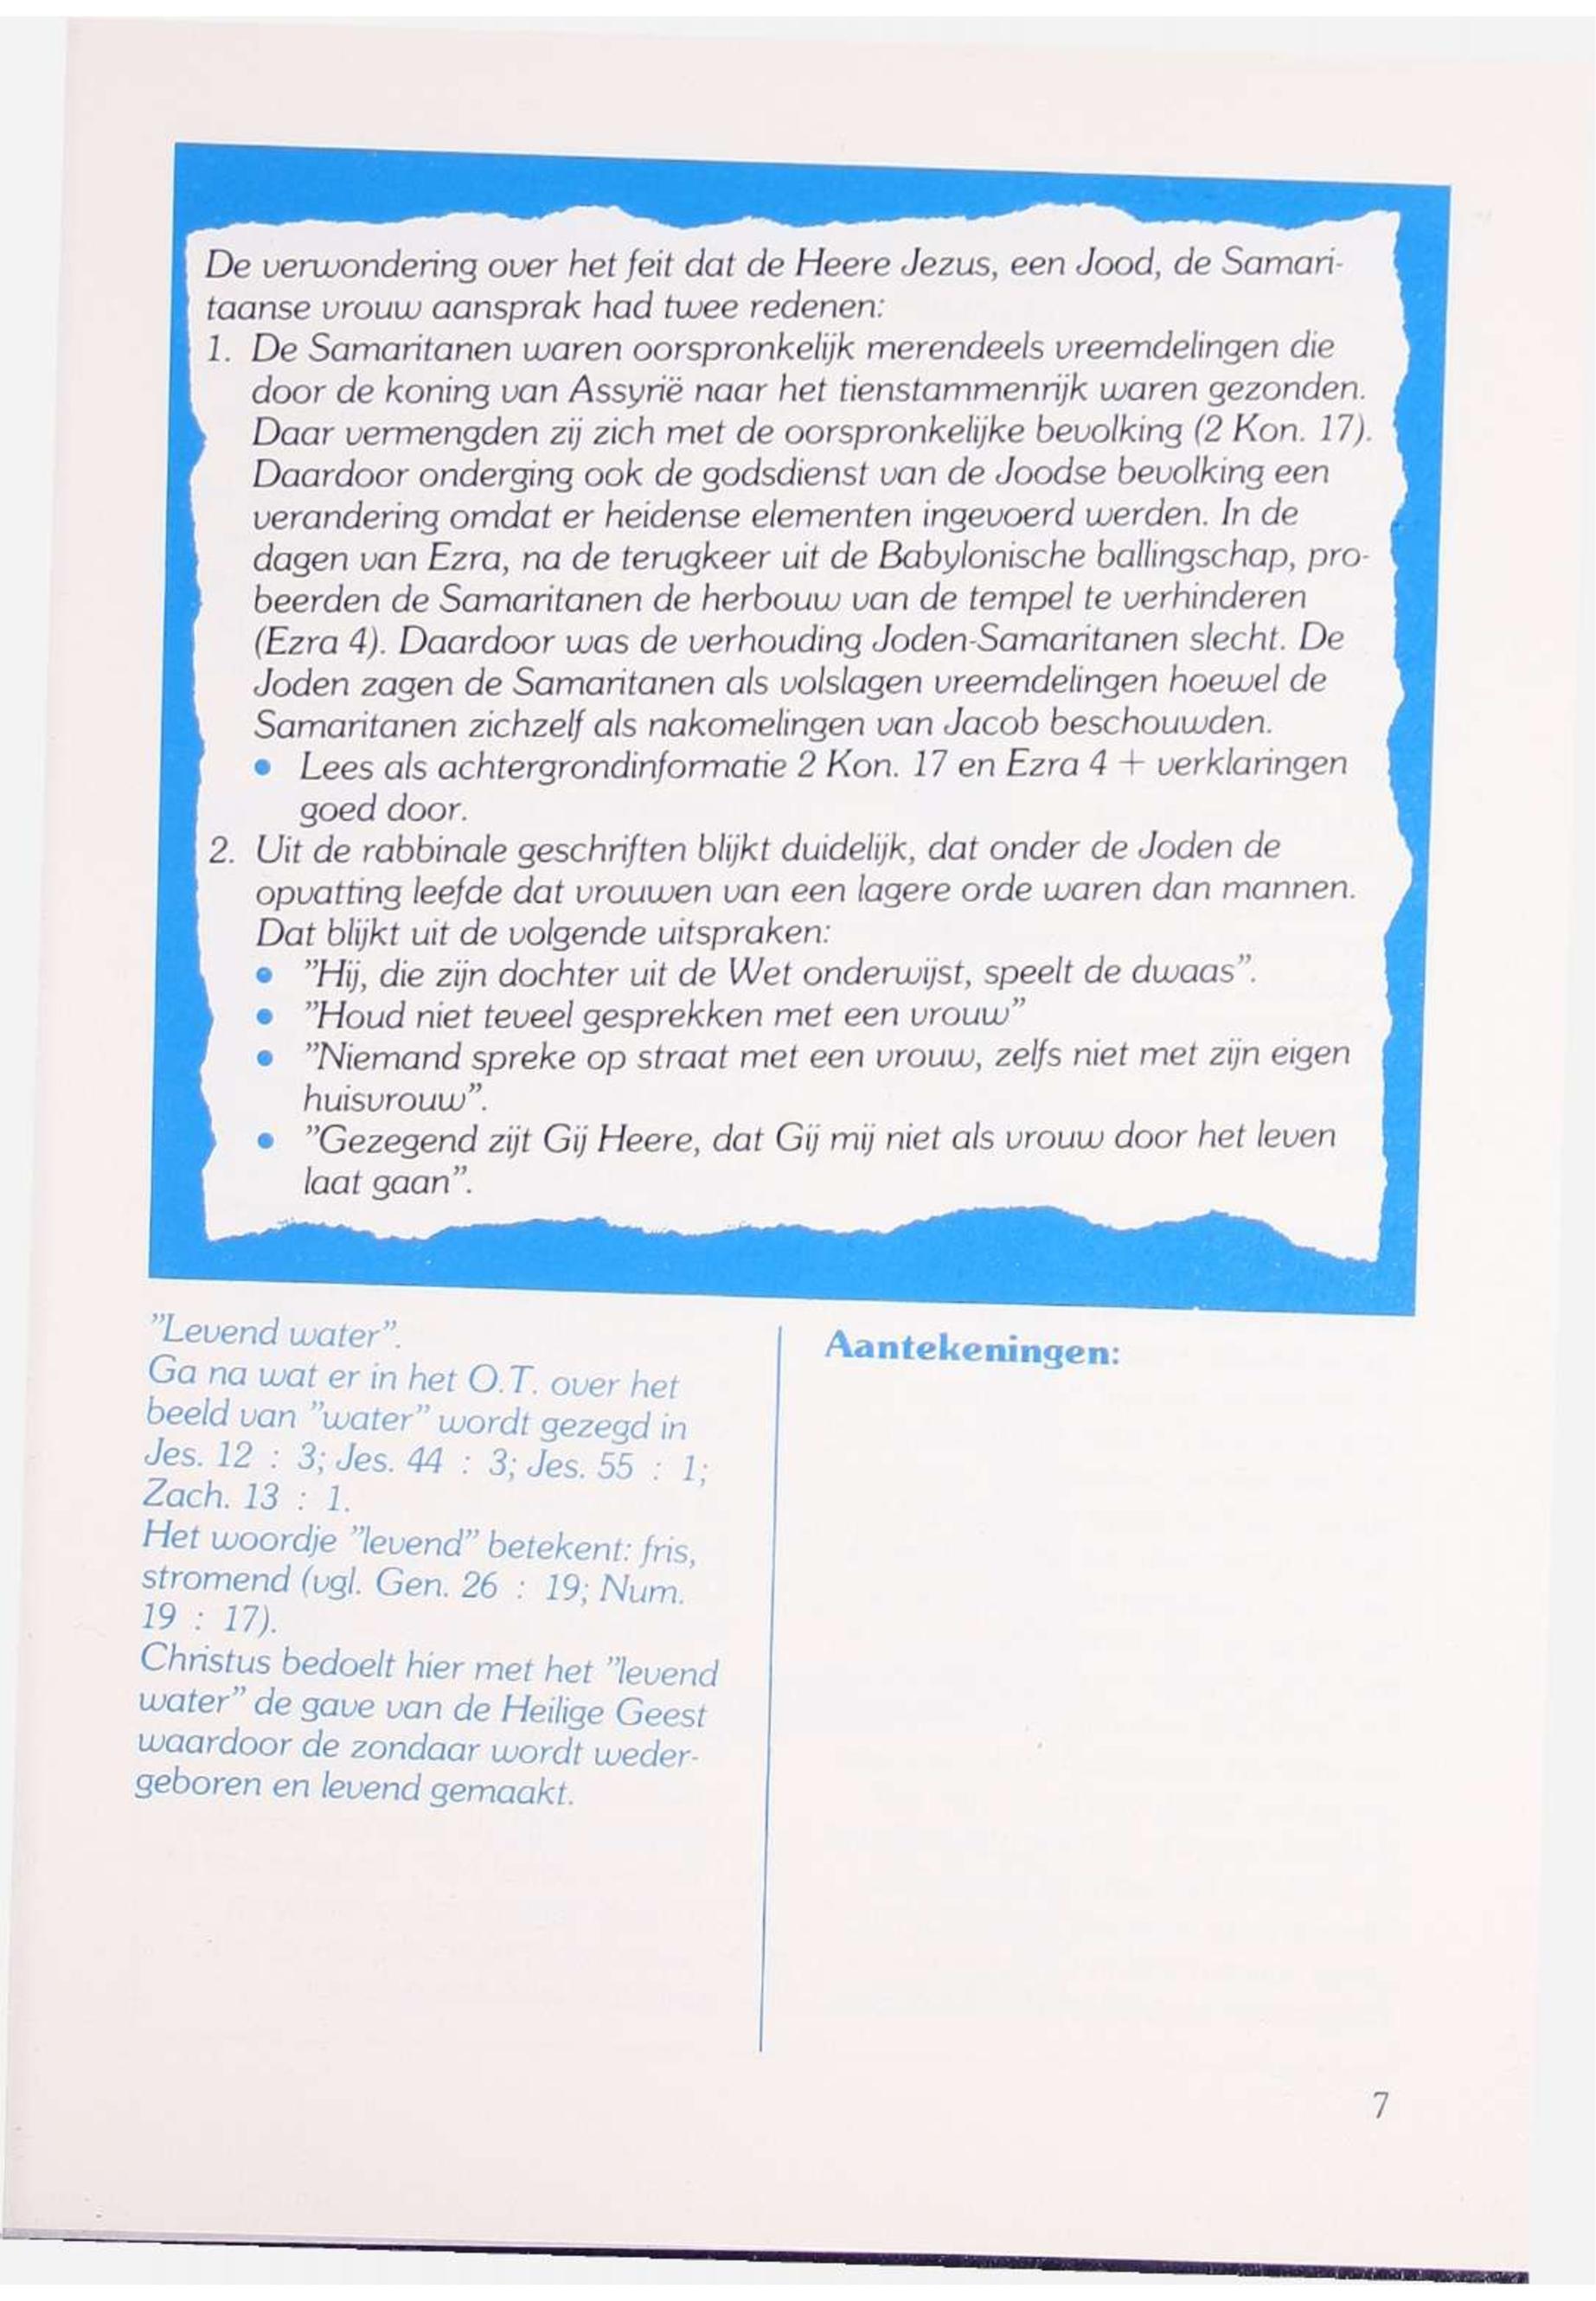 De verwondering over het feit dat de Heere Jezus, een Jood, de Samari-
taanse vrouw aansprak had twee redenen:
1. De Samaritanen waren oorspronkelijk merendeels vreemdelingen die
door de koning van Assyrië naar het tienstammenrijk waren gezonden.
Daar vermengden zij zich met de oorspronkelijke bevolking (2 Kon. 17).
Daardoor onderging ook de godsdienst van de Joodse bevolking een
verandering omdat er heidense elementen ingevoerd werden. In de
dagen van Ezra, na de terugkeer uit de Babylonische ballingschap, pro-
beerden de Samaritanen de herbouw van de tempel te verhinderen
(Ezra 4). Daardoor was de verhouding Joden-Samaritanen slecht. De
Joden zagen de Samaritanen als volslagen vreemdelingen hoewel de
Samaritanen zichzelf als nakomelingen van Jacob beschouwden.
• Lees als achtergrondinformatie 2 Kon. 17 en Ezra 4 + verklaringen
goed door.
2. Uit de rabbinale geschriften blijkt duidelijk, dat onder de Joden de
opvatting leefde dat vrouwen van een lagere orde waren dan mannen.
Dat blijkt uit de volgende uitspraken:
• ”Hij, die zijn dochter uit de Wet onderwijst, speelt de dwaas”.
• ”Houd niet teveel gesprekken met een vrouw”
• ”Niemand spreke op straat met een vrouw, zelfs niet met zijn eigen
huisvrouw”.
• ”Gezegend zijt Gij Heere, dat Gij mij niet als vrouw door het leven
laat gaan”.
”Levend water”.
Ga na wat er in het O.T. over het
beeld van ”water” wordt gezegd in
Jes. 12 : 3; Jes. 44 : 3; Jes. 55 : 1;
Zach. 13 : 1.
Het woordje ”levend” betekent: fris,
stromend (vgl. Gen. 26 : 19; Num.
19 : 17).
Christus bedoelt hier met het ”levend
water” de gave van de Heilige Geest
waardoor de zondaar wordt weder-
geboren en levend gemaakt.
Aantekeningen:
7